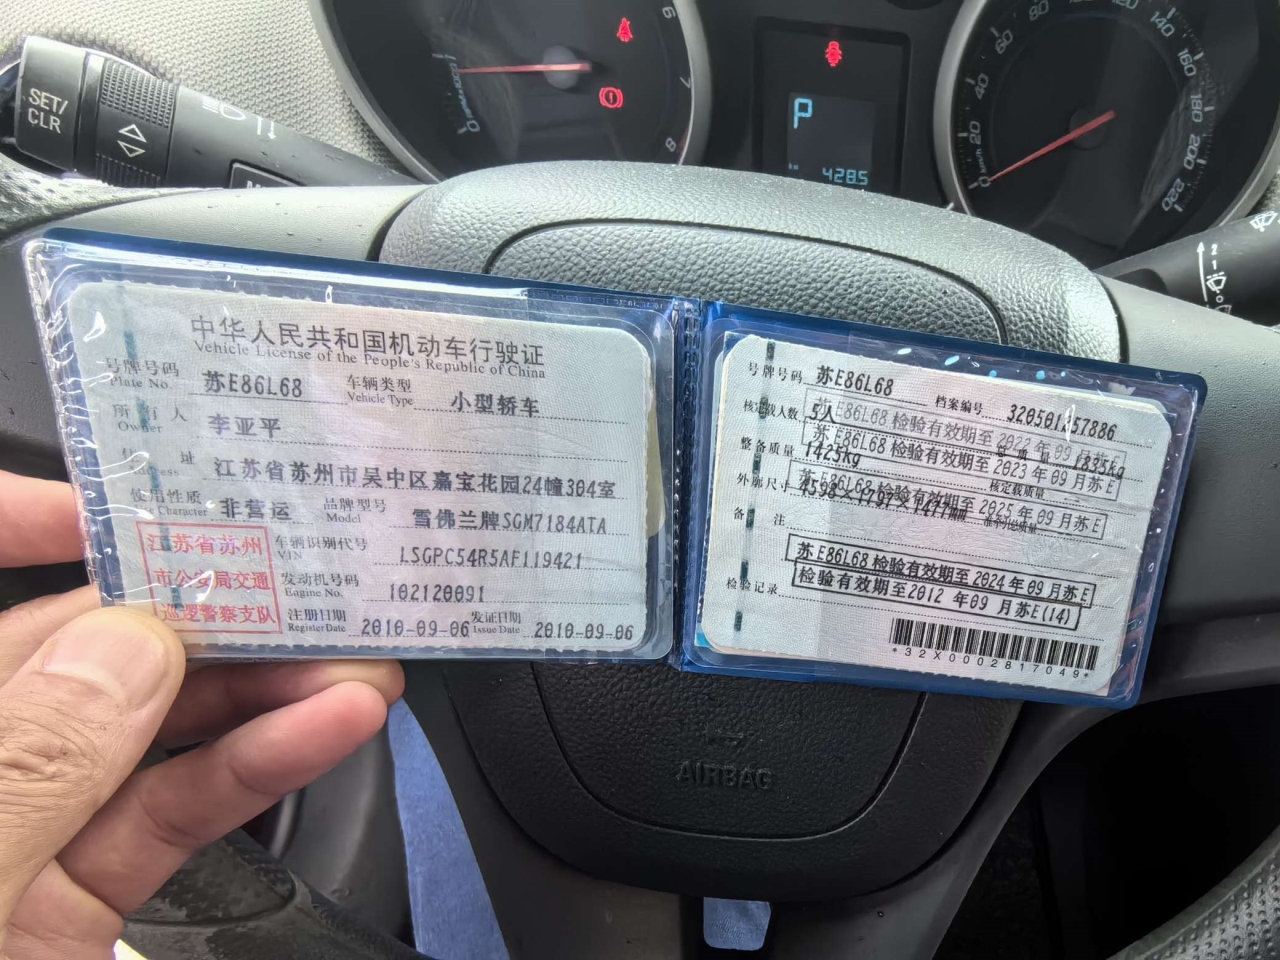 SET/
CLR
6
7
8
0
P
km 4285
0 km/h
20
40
60
80
120
140
160
180
200
220
2
1
中华人民共和国机动车行驶证
Vehicle License of the People's Republic of China
号牌号码 苏E86L68 车辆类型 小型轿车
Plate No. Vehicle Type
所有人 李亚平
Owner
住址 江苏省苏州市吴中区嘉宝花园24幢304室
使用性质 非营运 品牌型号 雪佛兰牌SGM7184ATA
Character Model
江苏省苏州
市公安局交通
巡逻警察支队
车辆识别代号 LSGPC54R5AF119421
VIN
发动机号码 102120091
Engine No.
注册日期 2010-09-06 发证日期 2010-09-06
Register Date Issue Date
号牌号码 苏E86L68 档案编号 320501257886
核定载人数 5人
苏E86L68 检验有效期至 2022年09月苏E
苏E86L68 检验有效期至 2023年09月苏E
整备质量 1425kg 1835kg
核定载质量
外廓尺寸 4598×1797×1477mm
苏E86L68 检验有效期至 2025年09月苏E
备注
苏E86L68 检验有效期至 2024年09月苏E
检验记录 检验有效期至2012年09月苏E(14)
*32X0002817049*
AIRBAG